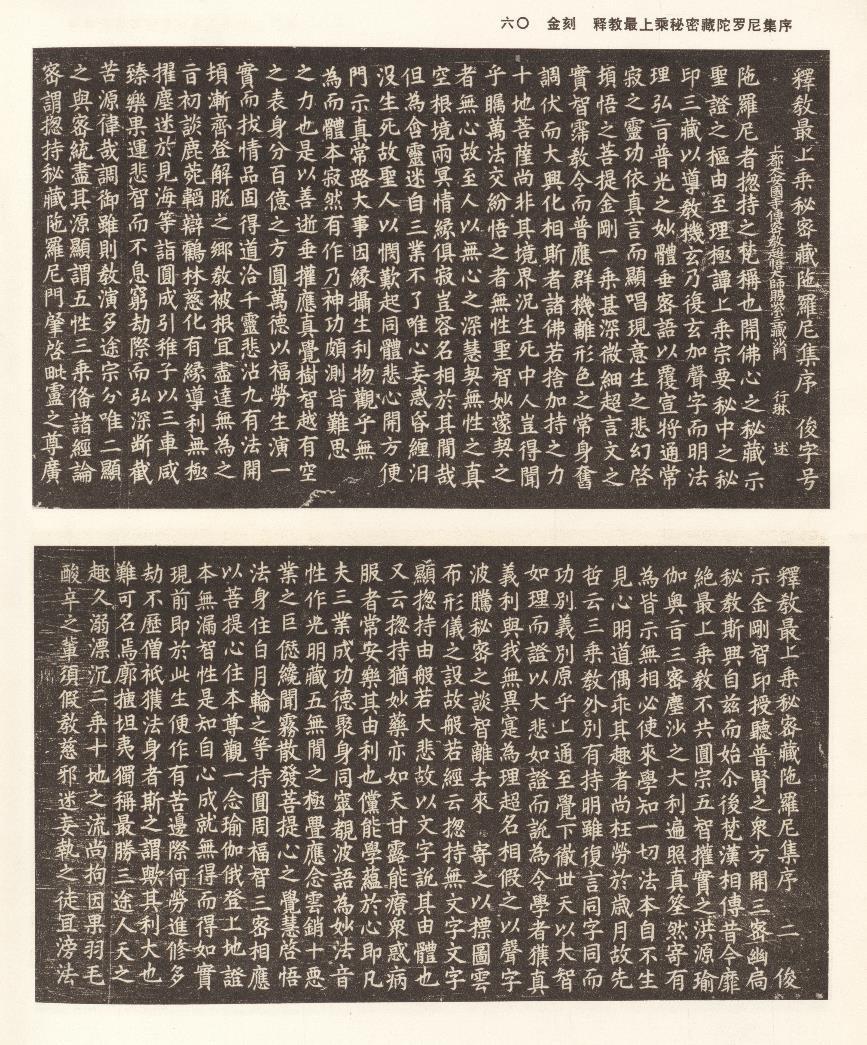 六〇　金刻　释教最上乘秘密藏陀罗尼集序
釋教最上乘秘密藏陁羅尼集序　俊字号
上都大安國寺傳密教超悟大師賜紫三藏沙門　行琳　述
陁羅尼者揔持之梵稱也開佛心之秘藏示
聖證之樞由至理極譚上乘宗要秘中之秘
印三藏以導教機玄乃復玄加聲字而明法
理弘言普光之妙體垂密語以覆宣将通常
寂之靈功依真言而顯唱現意生之悲幻啓
頓悟之菩提金剛一乘甚深微細超言文之
實智霈教令而普應群機離形色之常身奮
調伏而大興化相斯者諸佛若捨加持之力
十地菩薩尚非其境界況生死中人豈得聞
乎矚萬法交紛悟之者無性聖智妙邃契之
者無心故至人以無心之深慧契無性之真
空根境兩冥情緣俱寂豈容名相於其間哉
但為含靈迷自三業不了唯心妄惑昏纏汩
没生死故聖人以憫歎起同體悲心開方便
門示真常路大事因緣攝生利物觀乎無
為而體本寂然有作乃神功頗測皆難思
之力也是以善逝垂攉應真覺樹智越有空
之表身分百億之方圓萬德以福勞生演一
實而拔情品固得道洽千靈悲沾九有法開
頓漸齊登解脫之鄉教被根冝盡達無為之
言初談鹿菀韜辯鶴林慈化有緣導利無極
擢塵迷於見海等詣圓成引稚子以三車咸
臻樂果運悲智而不息窮劫際而弘深断截
苦源律哉調御雖則教演多途宗分唯二顯
之與密統盡其源顯謂五性三乘俻諸經論
密謂揔持秘藏陁羅尼門肇啓毗盧之尊廣
釋教最上乘秘密藏陁羅尼集序　二　俊
示金剛智印授聽普賢之衆方開三密幽扃
秘教斯興自兹而始尒後梵漢相傳昔令靡
絶最上乘教不共圓宗五智攉實之洪源瑜
伽奥言三密塵沙之大利遍照真筌然寄有
為皆示無相必使來學知一切法本自不生
見心明道偶乖其趣者尚枉勞於歲月故先
哲云三乘教外別有持明雖復言同字同而
功別義別原乎上通至覺下徹世天以大智
如理而證以大悲如證而說為令學者獲真
義利與我無異寔為理超名相假之以聲字
波騰秘密之談智離去來　寄之以標圖雲
布形儀之設故般若經云揔持無文字文字
顯揔持由般若大悲故以文字說其由體也
又云揔持猶妙藥亦如天甘露能療衆惑病
服者常安樂其由利也儻能學藴於心即凡
夫三業成功德聚身同窣覩波語為妙法音
性作光明藏五無間之極舋應念雲銷十悪
業之巨僁纔聞霧散發菩提心之覺慧啓悟
法身住白月輪之等持圓周福智三密相應
以菩提心住本尊觀一念瑜伽俄登上地證
本無漏智性是知自心成就無得而得如實
現前即於此生便作有苦邊際何勞進修多
劫不歷僧祇獲法身者斯之謂歟其利大也
難可名焉廓擅坦夷獨稱最勝三途人天之
趣久溺漂沉二乘十地之流尚拘因果羽毛
酸辛之輩須假教慈邪迷妄執之徒冝滂法